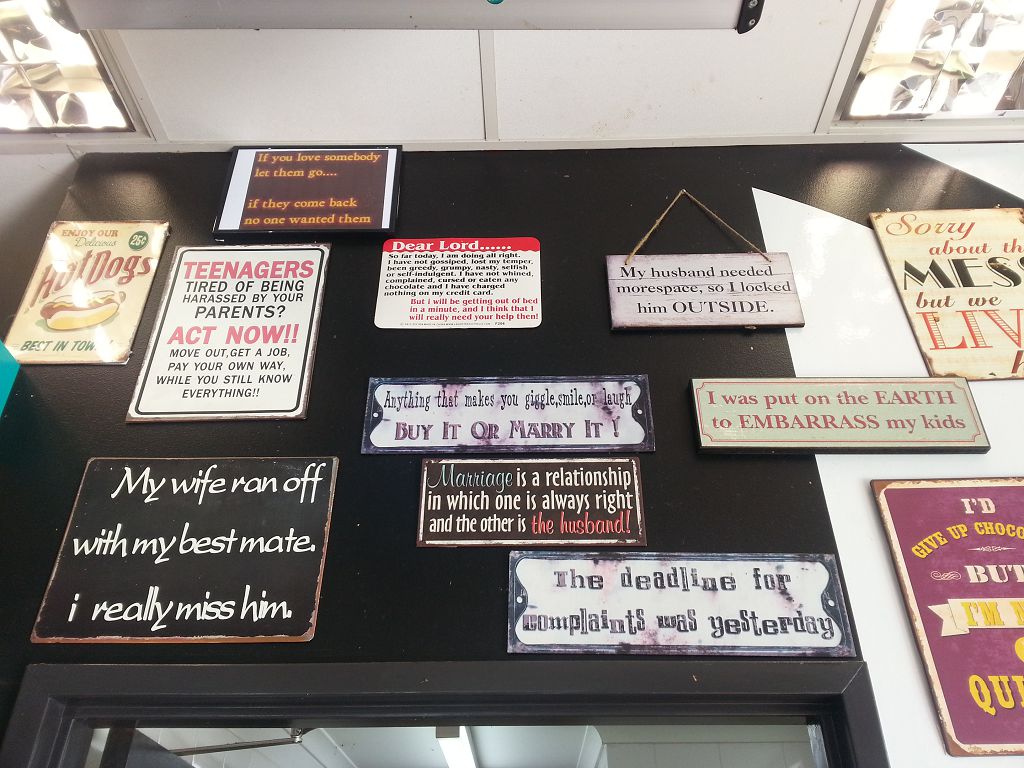 If you love somebody
let them go....
if they come back
no one wanted them
ENJOY OUR
Delicious
25¢
Hot Dogs
BEST IN TOWN
TEENAGERS
TIRED OF BEING
HARASSED BY YOUR
PARENTS?
ACT NOW!!
MOVE OUT,GET A JOB,
PAY YOUR OWN WAY,
WHILE YOU STILL KNOW
EVERYTHING!!
Dear Lord......
So far today, I am doing all right.
I have not gossiped, lost my temper,
been greedy, grumpy, nasty, selfish
or self-indulgent. I have not whined,
complained, cursed or eaten any
chocolate and I have charged
nothing on my credit card.
But i will be getting out of bed
in a minute, and I think that I
will really need your help then!
My husband needed
morespace, so I locked
him OUTSIDE.
Sorry
about th
MES
but we
LIV
Anything that makes you giggle,smile,or laugh
BUY IT OR MARRY IT !
I was put on the EARTH
to EMBARRASS my kids
My wife ran off
with my best mate.
i really miss him.
Marriage is a relationship
in which one is always right
and the other is the husband!
The deadline for
complaints was yesterday
I'D
GIVE UP CHOCO
BUT
I'M N
QUI